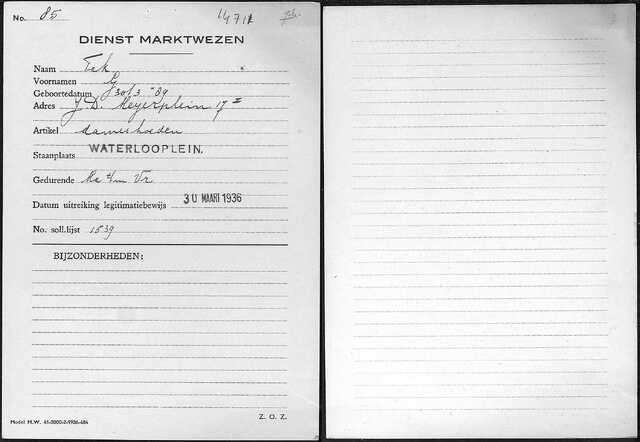 No. 85 1471
DIENST MARKTWEZEN
Naam Eek
Voornamen G
Geboortedatum 30/3 - 89
Adres J. D. Meyerplein 17 II
Artikel dameshoeden
Staanplaats WATERLOOPLEIN.
Gedurende Ma t/m Vr
Datum uitreiking legitimatiebewijs 30 MAART 1936
No. soll.lijst 1539
BIJZONDERHEDEN:
Z. O. Z.
Model M.W. 41-5000-2-1936-484